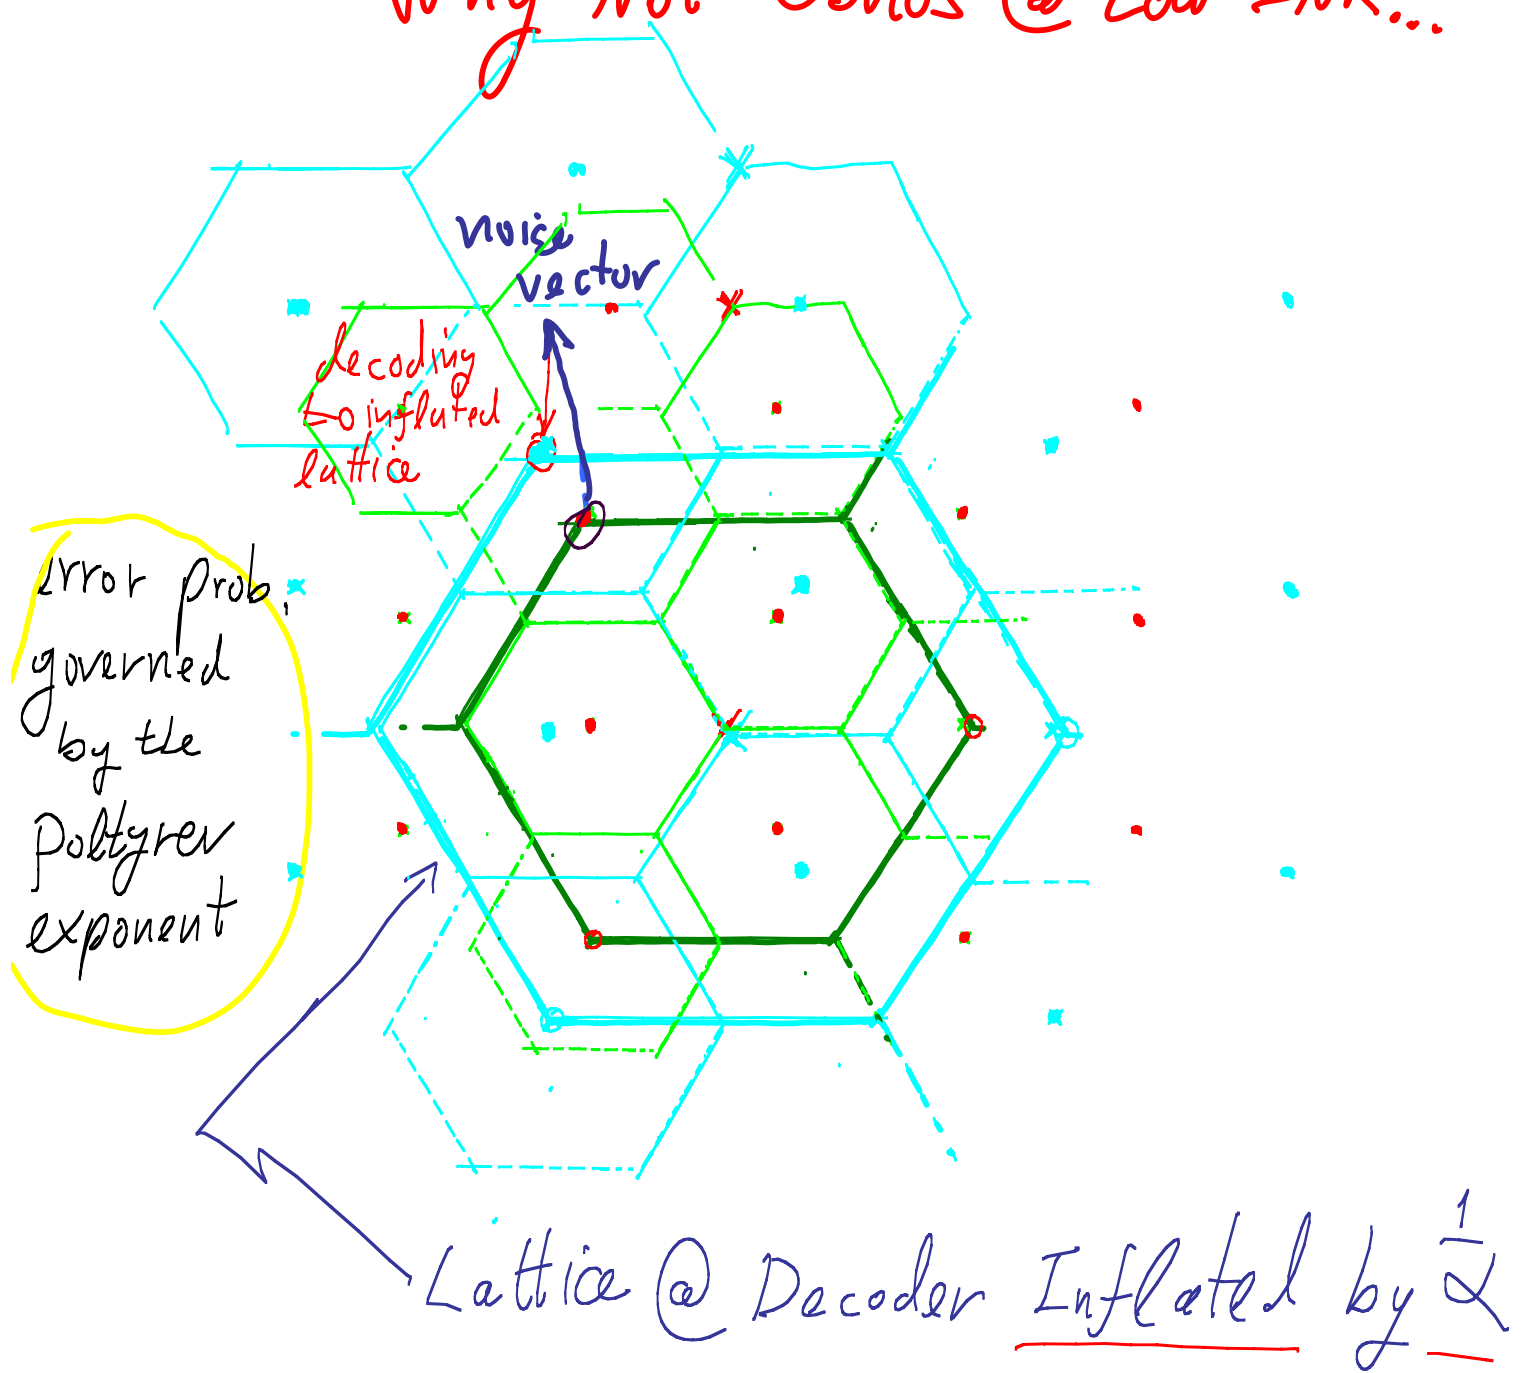 Why Not
@ Low SNR...
noise
vector
decoding
inflated
lattice
error prob.
governed
by the
Poltyrev
exponent
Lattice @ Decoder Inflated by 1/α